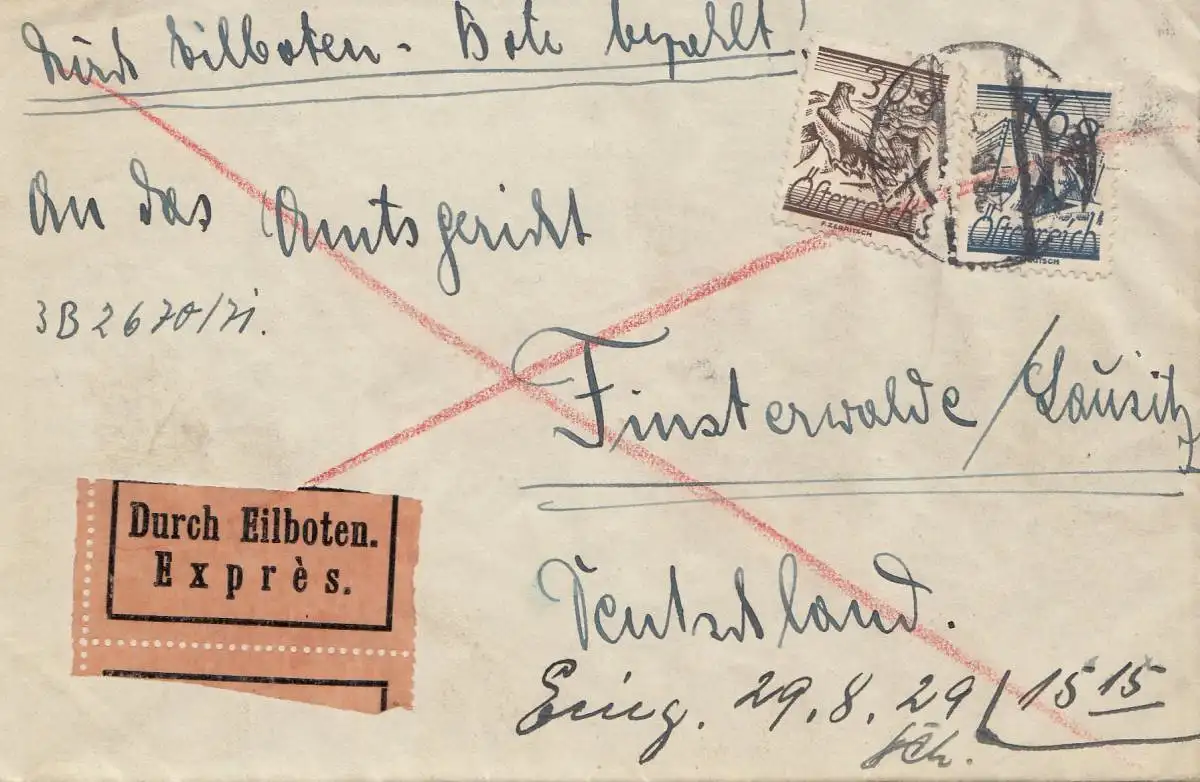 Durch Eilboten - Bote bezahlt!
30 g
Österreich
F.ZERRITSCH
16 g
Österreich
An das Amtsgericht
3B 2670/71.
Finsterwalde / Lausitz
Durch Eilboten.
Exprès.
Deutschland.
Eing. 29.8.29 15 15
Sch.